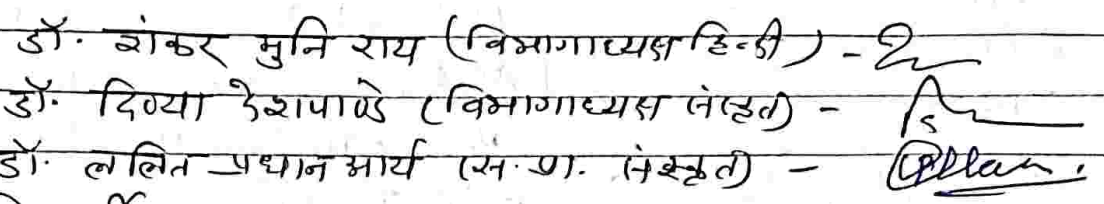 डॉ. शंकर मुनि राय (विभागाध्यक्ष हिन्दी) -
डॉ. दिव्या देशपाण्डे (विभागाध्यक्ष संस्कृत) -
डॉ. ललित प्रधान आर्य (स.प्रा. संस्कृत) -